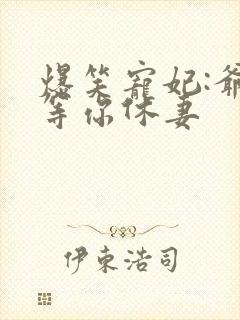 爆笑寵妃:爺
等你休妻
伊東浩司